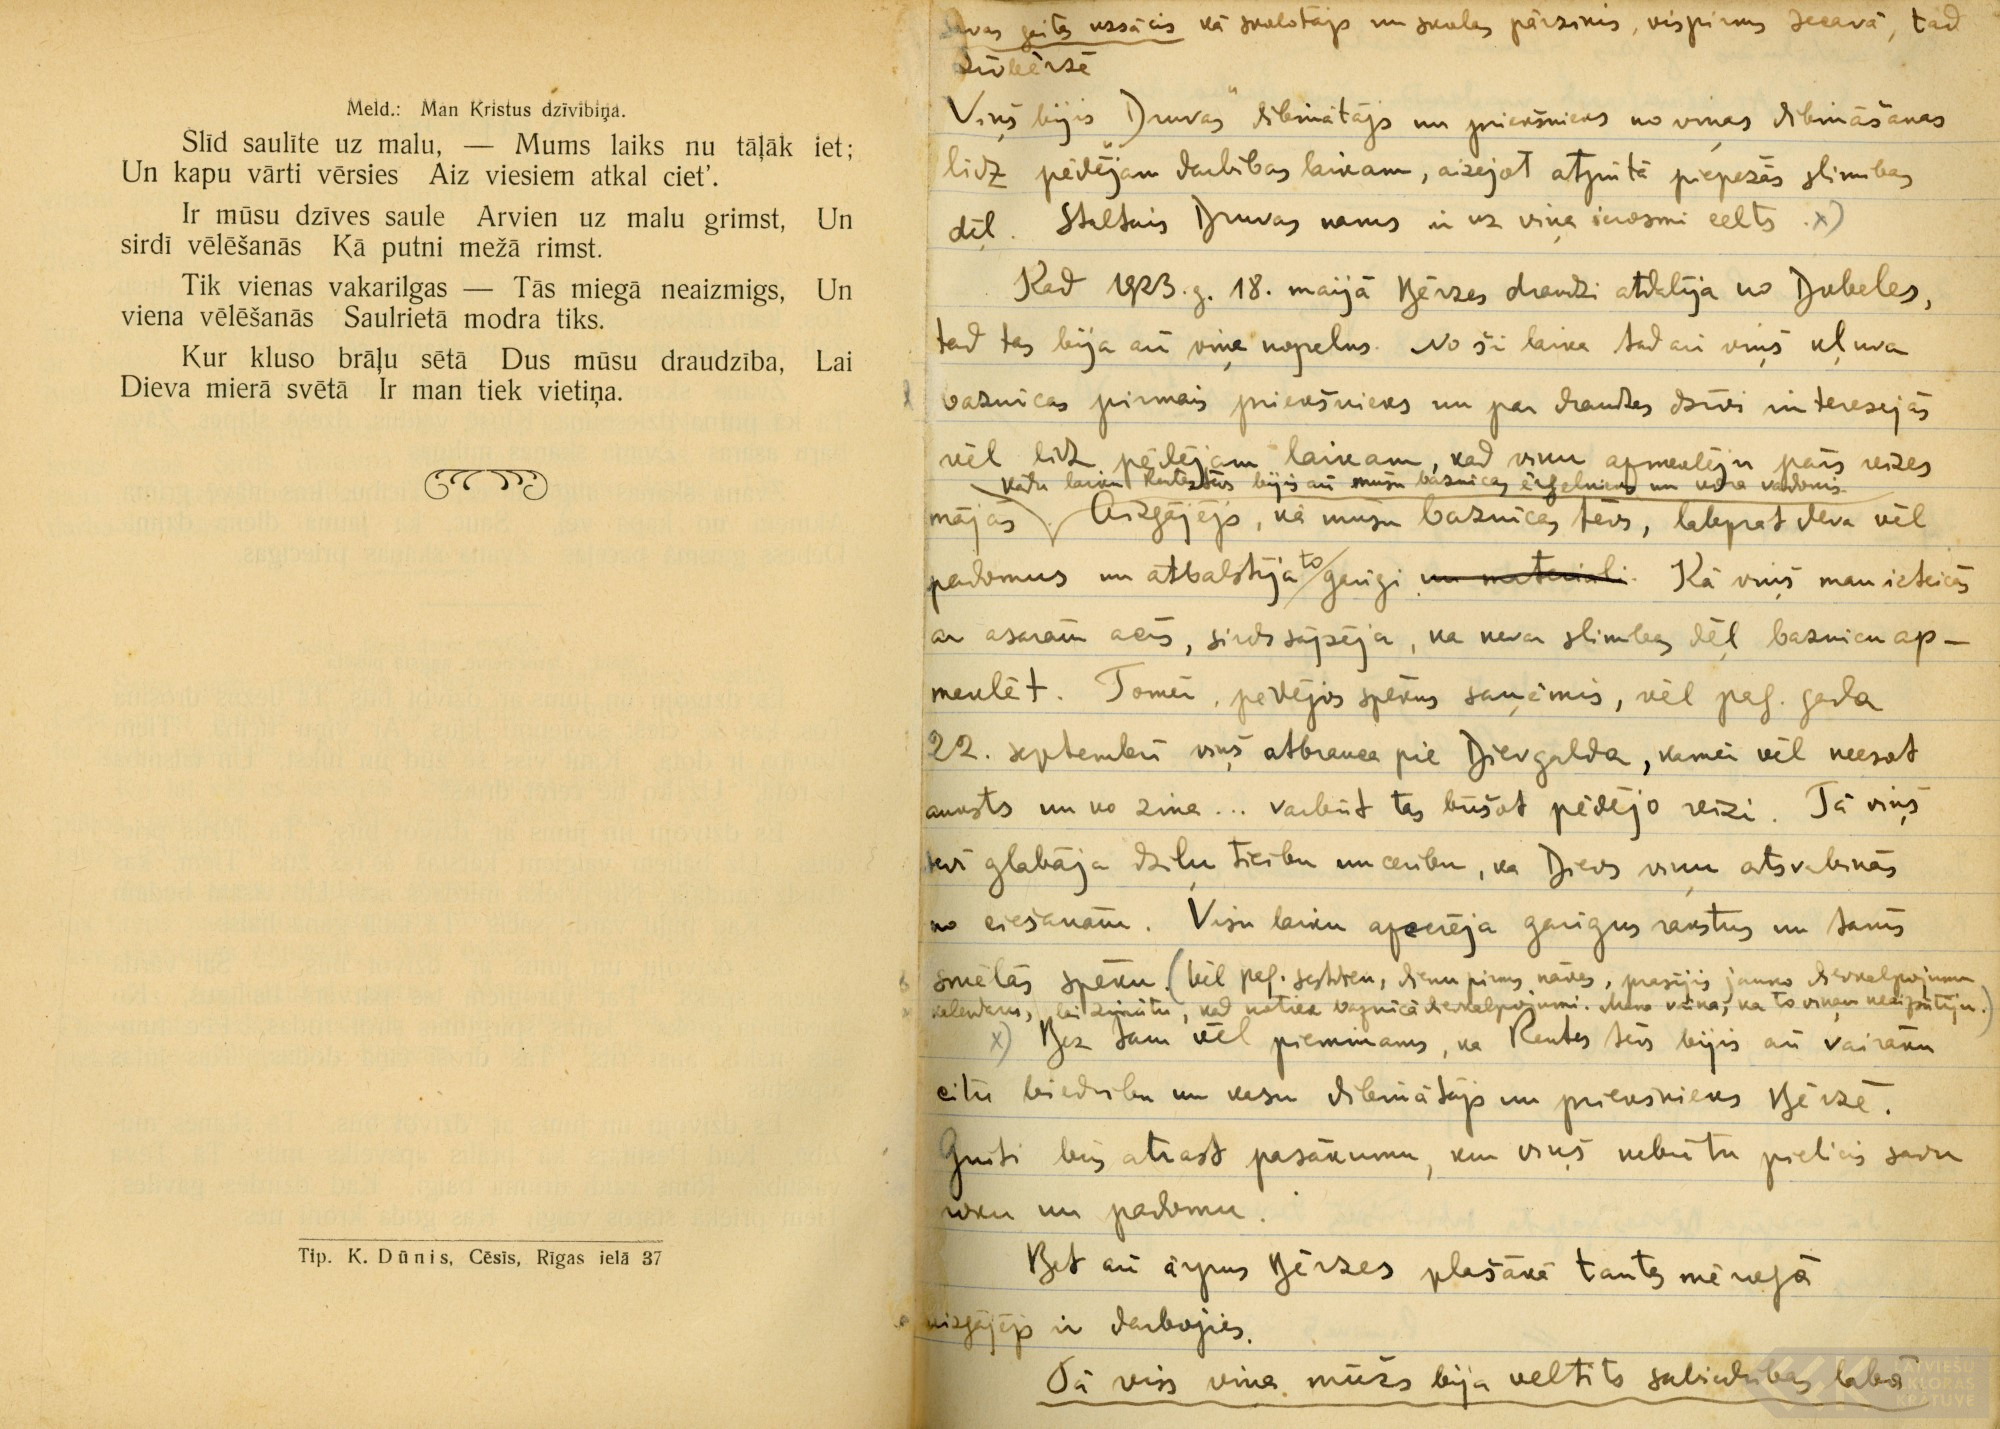 Meld.: Man Kristus dzīvībiņa.
Slīd saulīte uz malu, — Mums laiks nu tāļāk iet;
Un kapu vārti vērsies Aiz viesiem atkal ciet'.
Ir mūsu dzīves saule Arvien uz malu grimst, Un
sirdī vēlēšanās Kā putni mežā rimst.
Tik vienas vakarilgas — Tās miegā neaizmigs, Un
viena vēlēšanās Saulrietā modra tiks.
Kur kluso brāļu sētā Dus mūsu draudzība, Lai
Dieva mierā svētā Ir man tiek vietiņa.
Tip. K. Dūnis, Cēsīs, Rīgas ielā 37
savas gaitas uzsācis kā skolotājs un skolas pārzinis, vispirms Iecavā, tad
Viņš bijis Druvas" dibinātājs un priekšnieks no viņas dibināšanas
līdz pēdējam darbības laikam, aizejot atpūtā piepešās slimības
dēļ. Staltais Druvas nams ir uz viņa ierosmi celts x)
Kad 1923. g. 18. maijā Bērzes draudzi atdalīja no Dobeles,
tad tas bija arī viņa nopelns. No šī laika tad arī viņš kļuva
baznīcas pirmais priekšnieks un par draudzes dzīvi interesējās
vēl līdz pēdējam laikam, kad viņu apmeklēju pāris reizes
kādu laiku Rentes tēvs bijis arī mūsu baznīcas ērģelnieks un kora vadonis
mājās. Aizgājējs, kā mūsu baznīcas tēvs, labprāt deva vēl
padomus un atbalstīja to garīgi un materiali. Kā viņš man ieteicās
ar asarām acīs, sirds sāpēja, ka nevar slimības dēļ baznīcu ap-
meklēt. Tomēr, pēdējos spēkus saņēmis, vēl pag. gada
22. septembrī viņš atbrauca pie Dievgalda, kamēr vēl neesot
auksts un ko zina... varbūt tas būšot pēdējo reizi. Tā viņš
sevī glabāja dziļu ticību un cerību, ka Dievs viņu atsvabinās
no ciešanām. Visu laiku apcerēja garīgus rakstus un tanīs
smēlās spēku. (Vēl pag. sestdien, dienu pirms nāves, prasījis jauno dievkalpojumu
kalendaru, lai zinātu, kad notiek baznīcā dievkalpojumi. Mana vaina, ka to viņam neaizsūtīju.)
x) Bez tam vēl pieminams, ka Rentes tēvs bijis arī vairāku
citu biedrību un kasu dibinātājs un priekšnieks Bērzē.
Grūti būs atrast pasākumu, kur viņš nebūtu pielicis savu
roku un padomu.
Bet arī ārpus Bērzes plašākā tautas mērogā
aizgājējs ir darbojies.
Tā viss viņa mūžs bija veltīts sabiedrības labā
LATVIEŠU
FOLKLORAS
KRĀTUVE